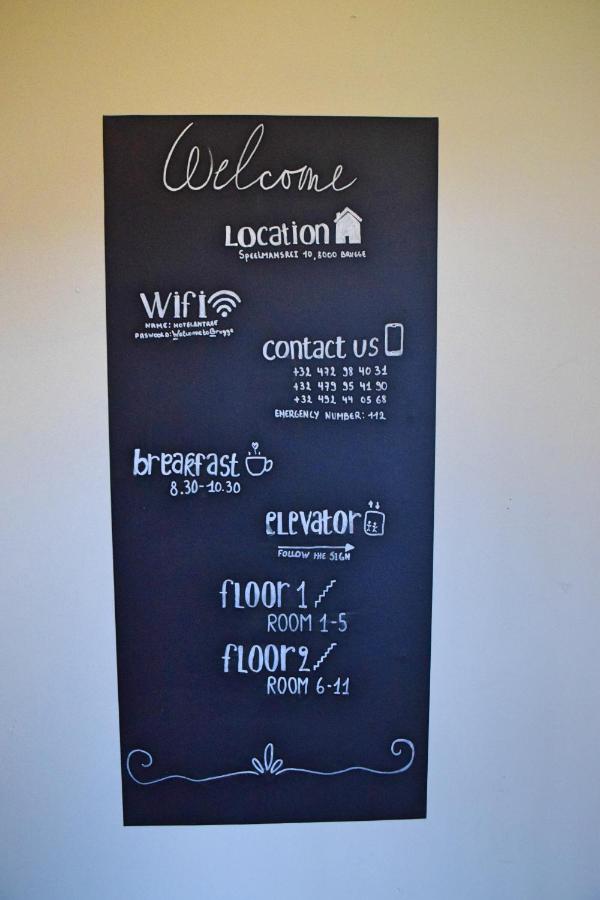 Welcome
Location
SPEELMANSREI 10, 8000 BRUGGE
Wifi
NAME: HOTELANTREE
PASWOORD: WelcometoBrugge
contact us
+32 472 98 40 31
+32 479 95 41 90
+32 492 44 05 68
EMERGENCY NUMBER: 112
breakfast
8.30-10.30
elevator
FOLLOW THE SIGN
floor 1
ROOM 1-5
floor 2
ROOM 6-11